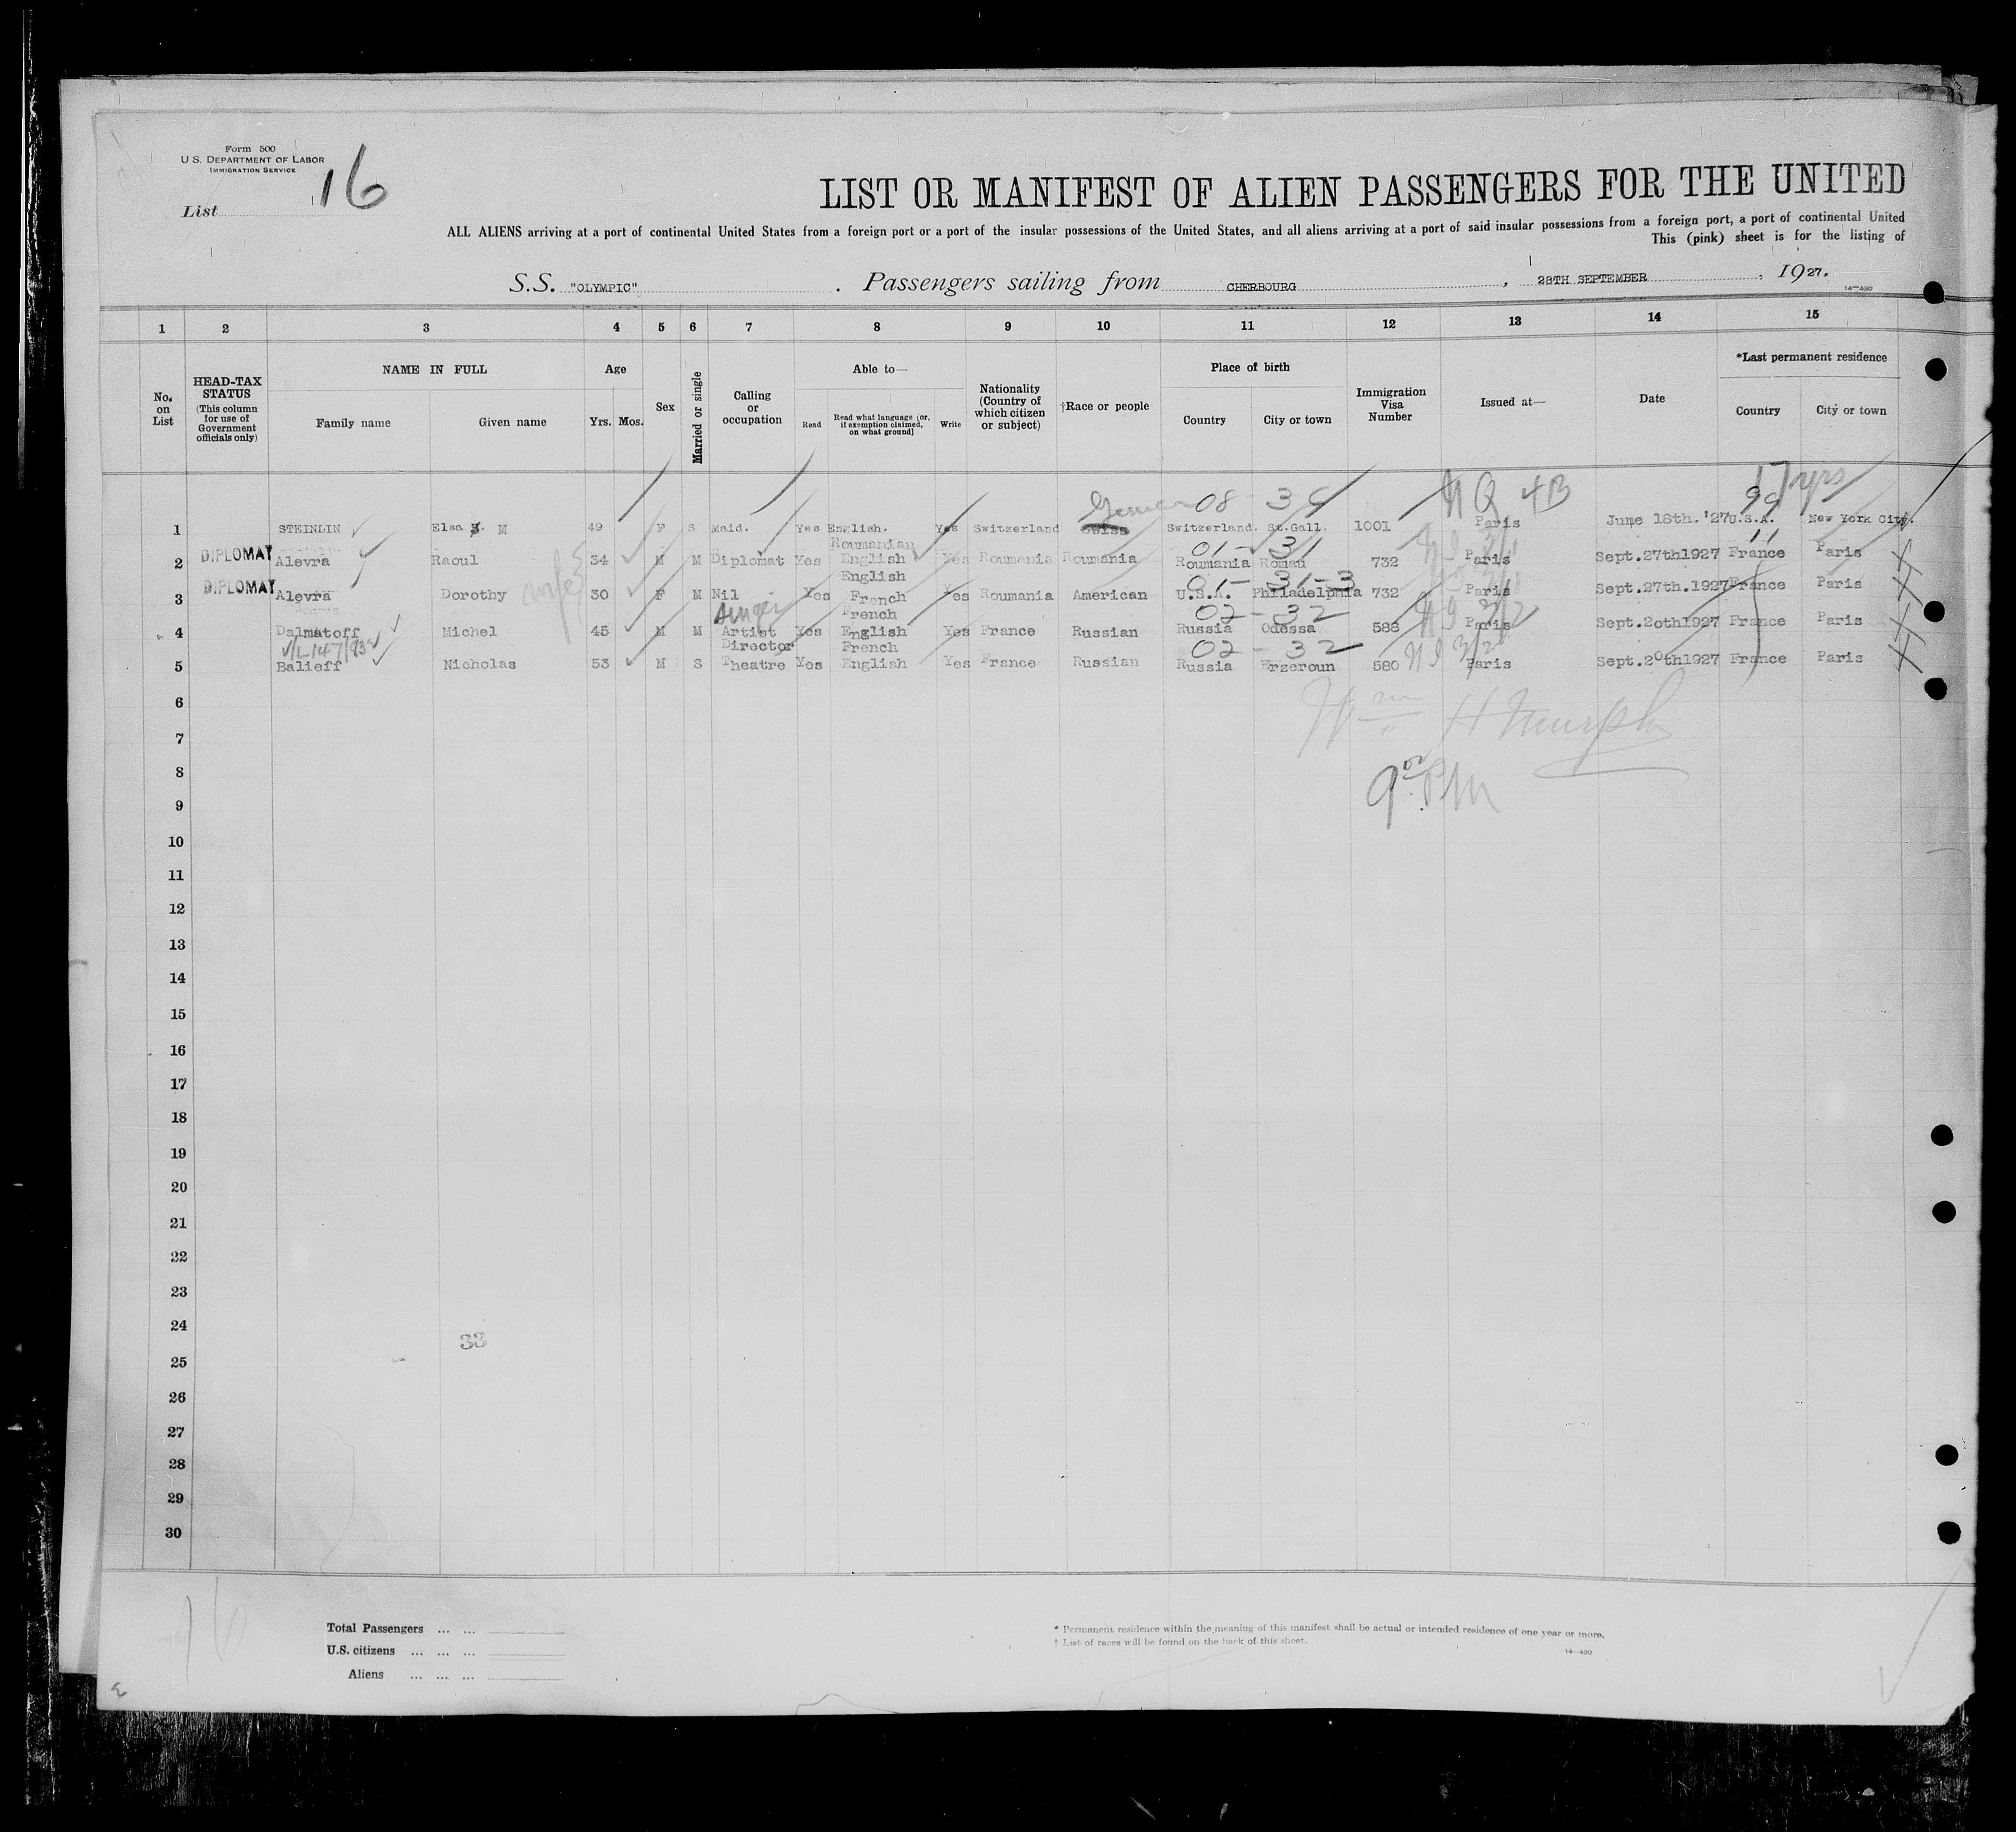 Form 500
U.S. DEPARTMENT OF LABOR
IMMIGRATION SERVICE
List 16
LIST OR MANIFEST OF ALIEN PASSENGERS FOR THE UNITED
ALL ALIENS arriving at a port of continental United States from a foreign port or a port of the insular possessions of the United States, and all aliens arriving at a port of said insular possessions from a foreign port, a port of continental United
This (pink) sheet is for the listing of
S.S. "OLYMPIC" . Passengers sailing from CHERBOURG , 28TH SEPTEMBER , 1927.
14—430
1 2 3 4 5 6 7 8 9 10 11 12 13 14 15
No. on List
HEAD-TAX STATUS (This column for use of Government officials only)
NAME IN FULL
Family name Given name
Age
Yrs. Mos.
Sex
Married or single
Calling or occupation
Able to—
Read
Read what language [or, if exemption claimed, on what ground]
Write
Nationality (Country of which citizen or subject)
†Race or people
Place of birth
Country City or town
Immigration Visa Number
Issued at—
Date
*Last permanent residence
Country City or town
German 08 36 N Q 4B 17 yrs
99
1 STEINLIN Elsa M 49 F S Maid. Yes English. Yes Switzerland Swiss Switzerland. St.Gall. 1001 Paris June 18th.'27 U.S.A. New York City.
Roumanian 01 - 31 11
2 DIPLOMAT Alevra Raoul 34 M M Diplomat Yes English Yes Roumania Roumania Roumania Roman 732 Paris Sept.27th1927 France Paris
English 01 - 31-3
3 DIPLOMAT Alevra Dorothy wife 30 F M Nil Yes French Yes Roumania American U.S.A. Philadelphia 732 Paris Sept.27th.1927 France Paris
Singer French 02 - 32
4 Dalmatoff Michel 45 M M Artist Yes English Yes France Russian Russia Odessa 588 Paris Sept.20th1927 France Paris
Director French 02 - 32
5 Balieff Nicholas 53 M S Theatre Yes English Yes France Russian Russia Erzeroun 580 Paris Sept.20th1927 France Paris
6
Wm H Murphy
7
8
9 00 PM
9
10
11
12
13
14
15
16
17
18
19
20
21
22
23
24
33
25
26
27
28
29
30
16
Total Passengers ... ...
U.S. citizens ... ... ...
Aliens ... ... ...
* Permanent residence within the meaning of this manifest shall be actual or intended residence of one year or more.
† List of races will be found on the back of this sheet.
14—430